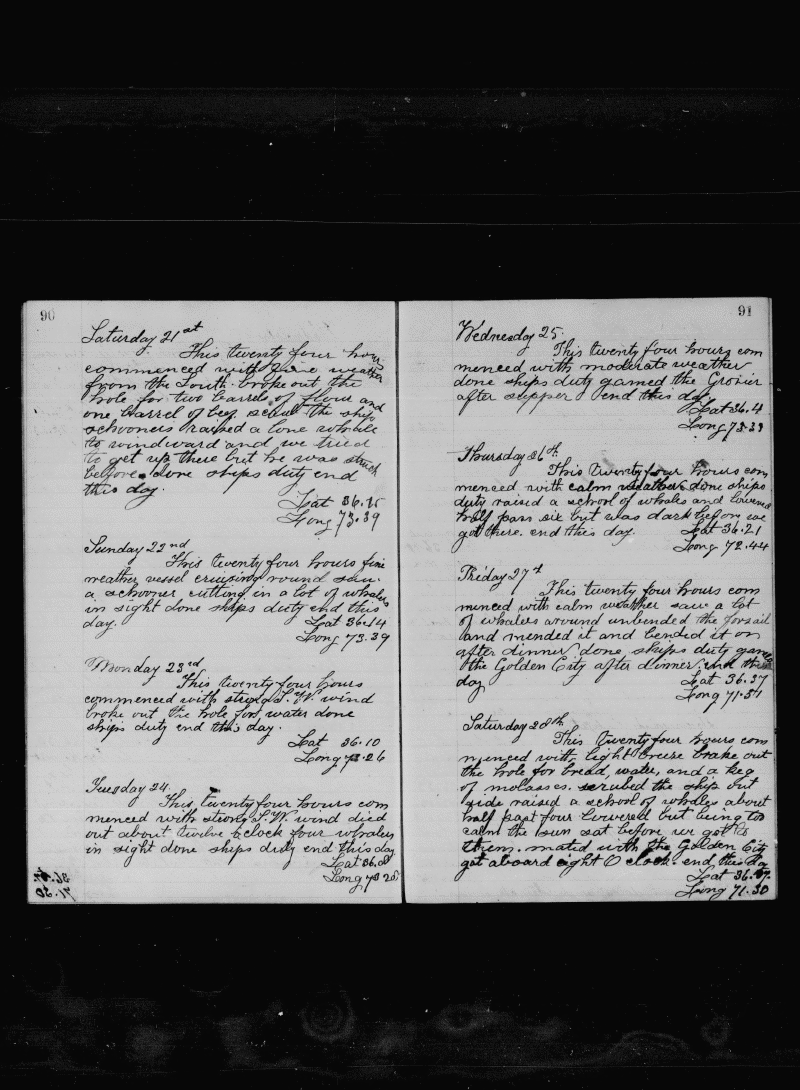 90
Saturday 21st
This twenty four hours
commenced with fine weather
from the South. broke out the
hole for two barrels of flour and
one barrel of beef. scrub the ship
schooners raised a lone whale
to windward and we tried
to get up there but he was struck
before. done ships duty end
this day.
Lat 36.15
Long 73.39
Sunday 22nd
This twenty four hours fine
weather vessel cruising round saw
a schooner cutting in a lot of whalers
in sight done ships duty end this
day.
Lat 36.14
Long 73.39
Monday 23rd
This twenty four hours
commenced with strong S.W. wind
broke out the hole for water done
ships duty end this day.
Lat 36.10
Long 73.26
Tuesday 24
This twenty four hours com
menced with strong S.W. wind died
out about twelve Oclock four whalers
in sight done ships duty end this day
Lat 36.08
Long 73 25
91
Wednesday 25.
This twenty four hours com
menced with moderate weather
done ships duty gamed the Grosier
after supper end this day
Lat 36.4
Long 73.33
Thursday 26th
This twenty four hours com
menced with calm weather done ships
duty raised a school of whales and lowered
half pass six but was dark before we
got there. end this day.
Lat 36.21
Long 72.44
Friday 27th
This twenty four hours com
menced with calm weather saw a lot
of whalers around unbended the forsail
and mended it and bended it on
after dinner done ships duty gamed
the Golden City after dinner. end this
day
Lat 36.37
Long 71.51
Saturday 28th
This twenty four hours com
menced with light breeze brake out
the hole for bread, water, and a keg
of molasses. scrubed the ship out
side raised a school of whales about
half past four lowered but being to
calm the sun sat before we got to
them. mated with the Golden City
got aboard eight O clock. end this day
Lat 36.37.
Long 71.30